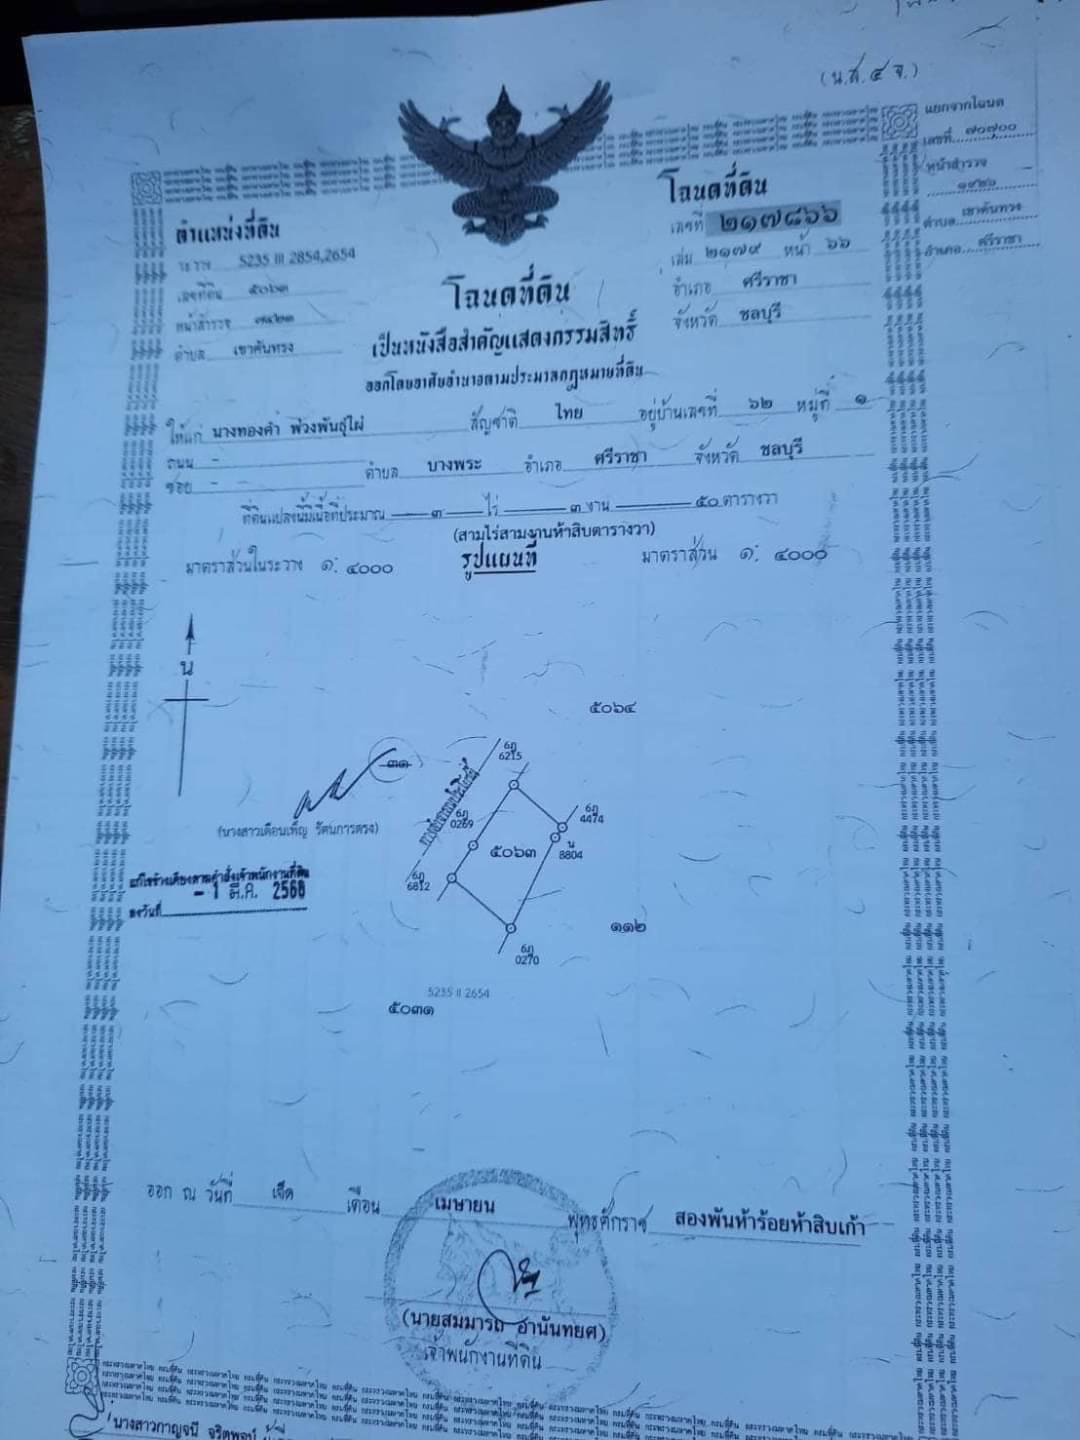 (น.ส.๔ จ.)
แยกจากโฉนด
เลขที่ ๗๐๗๐๐
หน้าสำรวจ
๑๙๒๖
ตำบล เขาคันทรง
อำเภอ ศรีราชา
ตำแหน่งที่ดิน
ระวาง 5235 III 2854,2654
เลขที่ดิน ๕๐๖๓
หน้าสำรวจ
ตำบล เขาคันทรง
โฉนดที่ดิน
เลขที่ ๒๑๗๘๖๖
เล่ม ๒๑๗๙ หน้า ๖๖
อำเภอ ศรีราชา
จังหวัด ชลบุรี
โฉนดที่ดิน
เป็นหนังสือสำคัญแสดงกรรมสิทธิ์
ออกโดยอาศัยอำนาจตามประมวลกฎหมายที่ดิน
ให้แก่ นางทองคำ พ่วงพันธุ์ไผ่ สัญชาติ ไทย อยู่บ้านเลขที่ ๖๒ หมู่ที่ ๑
ถนน -
ซอย - ตำบล บางพระ อำเภอ ศรีราชา จังหวัด ชลบุรี
ที่ดินแปลงนี้มีเนื้อที่ประมาณ ๓ ไร่ ๓ งาน ๕๐ ตารางวา
(สามไร่สามงานห้าสิบตารางวา)
มาตราส่วนในระวาง ๑: ๔๐๐๐ รูปแผนที่ มาตราส่วน ๑: ๔๐๐๐
น
๕๐๖๔
๓๑
6ภ
6215
ทางลำรางสาธารณประโยชน์
6ภ
0269
6ภ
4474
น
8804
๕๐๖๓
6ภ
6812
6ภ
0270
(นางสาวเดือนเพ็ญ รัตนการตรง)
แก้ไขข้างเคียงตามคำสั่งเจ้าพนักงานที่ดิน
ลงวันที่ - 1 มี.ค. 2566
๑๑๒
5235 II 2654
๕๐๓๑
ออก ณ วันที่ เจ็ด เดือน เมษายน พุทธศักราช สองพันห้าร้อยห้าสิบเก้า
(นายสมมารถ อานันทยศ)
เจ้าพนักงานที่ดิน
นางสาวกาญจนี